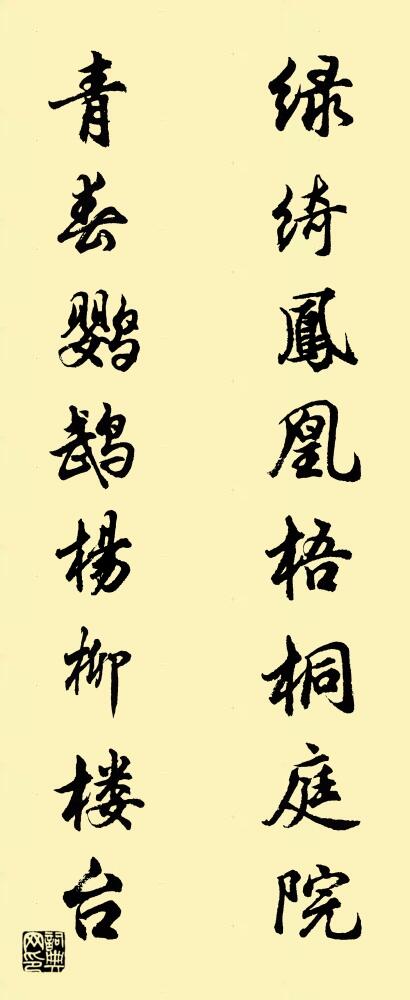 绿绮鳳凰梧桐庭院
青春鹦鹉楊柳楼台
詞典网印